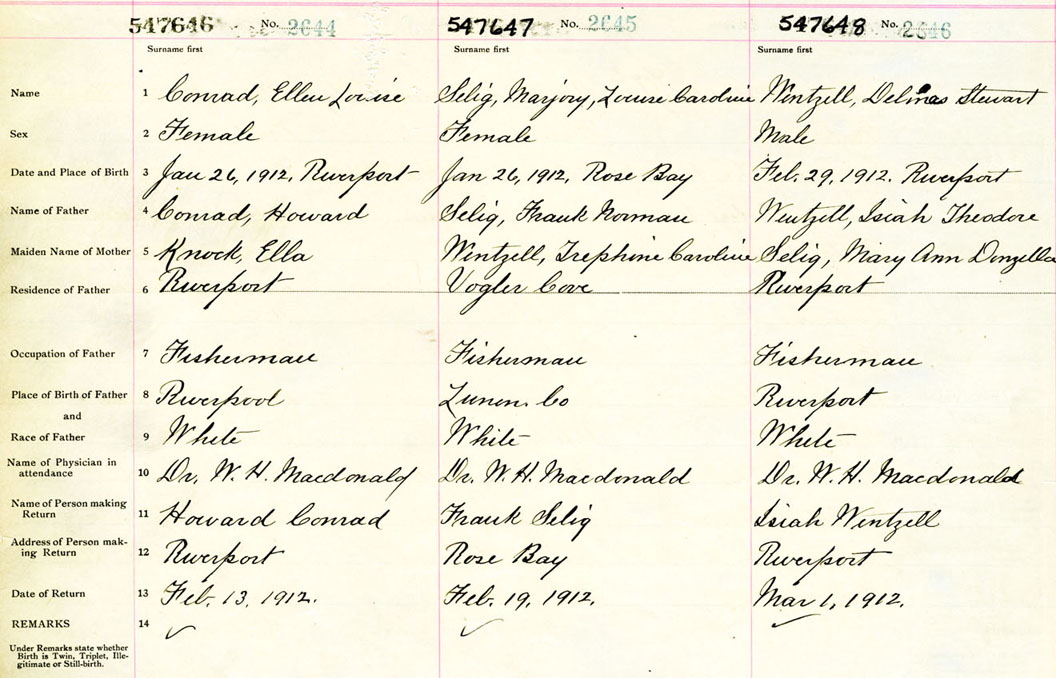 547646 No. 2644 547647 No. 2645 547648 No. 2646
Surname first Surname first Surname first
Name 1 Conrad, Ellen Louise Selig, Marjory, Louise Caroline Wentzell, Delmas Stewart
Sex 2 Female Female Male
Date and Place of Birth 3 Jan 26, 1912, Riverport Jan 26, 1912, Rose Bay Feb. 29, 1912. Riverport
Name of Father 4 Conrad, Howard Selig, Frank Norman Wentzell, Isiah Theodore
Maiden Name of Mother 5 Knock, Ella Wentzell, Trephine Caroline Selig, Mary Ann Donzella
Residence of Father 6 Riverport Vogler Cove Riverport
Occupation of Father 7 Fisherman Fisherman Fisherman
Place of Birth of Father 8 Riverpool Lunen. Co Riverport
and
Race of Father 9 White White White
Name of Physician in
attendance 10 Dr. W. H. Macdonald Dr. W. H. Macdonald Dr. W. H. Macdonald
Name of Person making
Return 11 Howard Conrad Frank Selig Isiah Wentzell
Address of Person mak-
ing Return 12 Riverport Rose Bay Riverport
Date of Return 13 Feb. 13, 1912. Feb. 19, 1912. Mar 1, 1912.
REMARKS 14
Under Remarks state whether
Birth is Twin, Triplet, Ille-
gitimate or Still-birth.